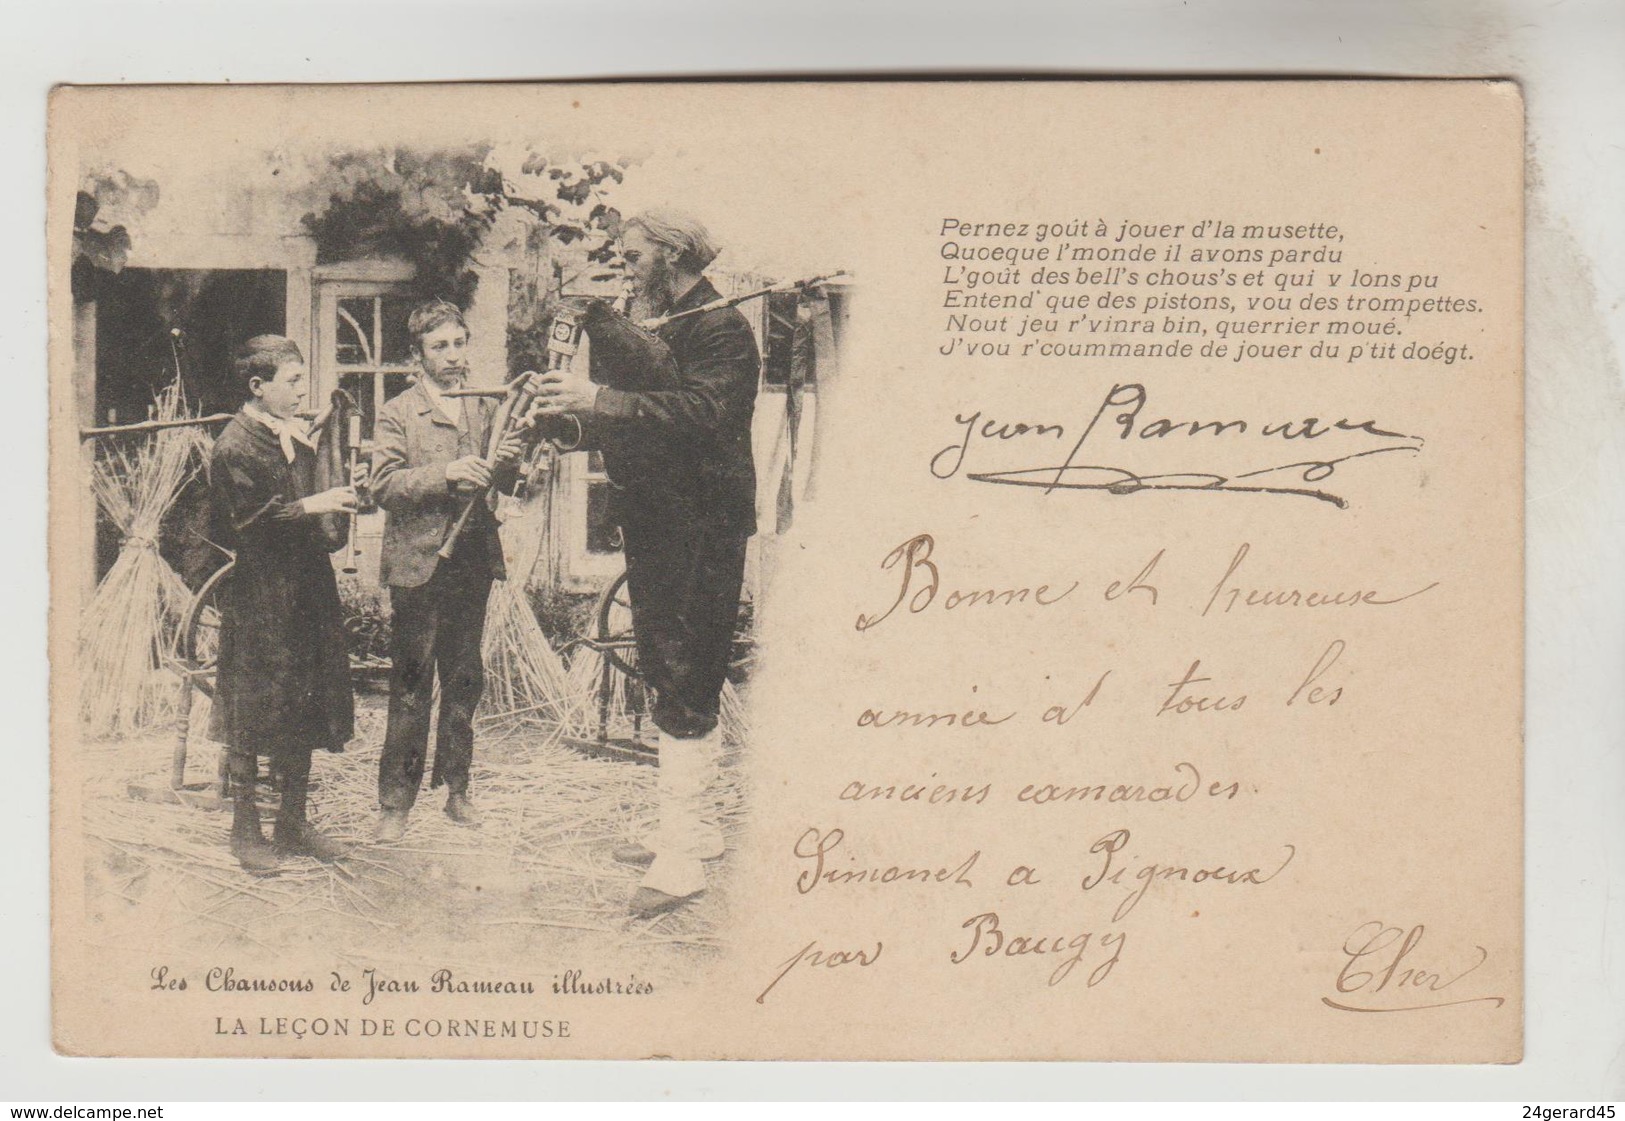 Pernez goût à jouer d'la musette,
Quoeque l'monde il avons pardu
L'goût des bell's chous's et qui v lons pu
Entend' que des pistons, vou des trompettes.
Nout jeu r'vinra bin, querrier moué.
J'vou r'coummande de jouer du p'tit doégt.
Jean Rameau
Bonne et heureuse
année à tous les
anciens camarades
Simonet a Pignoux
par Baugy
Cher
Les Chansons de Jean Rameau illustrées
LA LEÇON DE CORNEMUSE
www.delcampe.net
24gerard45